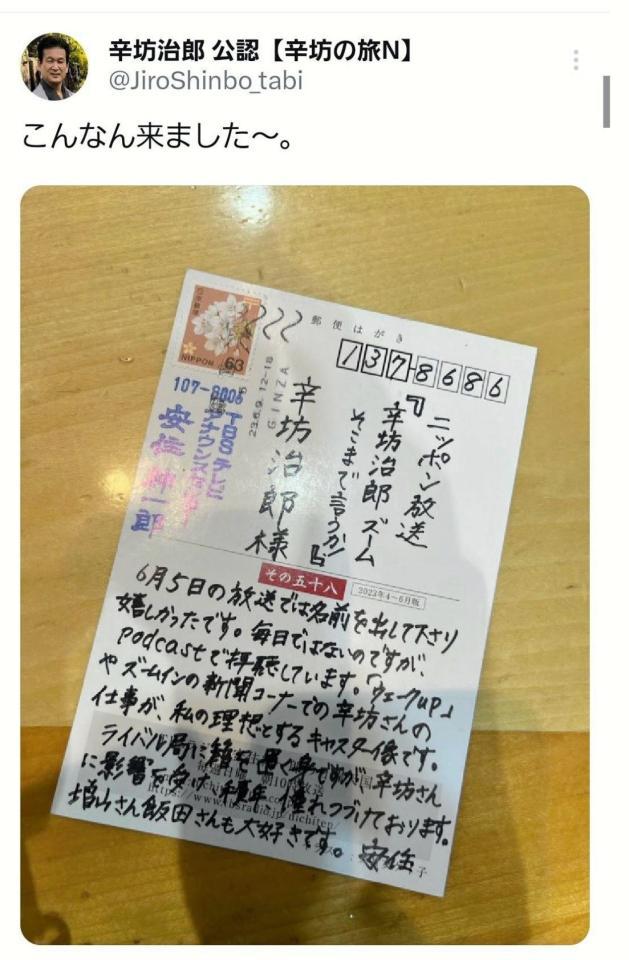 辛坊治郎 公認【辛坊の旅N】
@JiroShinbo_tabi
こんなん来ました〜。
郵便はがき
137-8686
NIPPON 63
GINZA
23.6.9. 12-18
ニッポン放送
『辛坊治郎ズーム
そこまで言うか!』
辛坊治郎様
107-8006
TBSテレビ
アナウンスセンター
安住紳一郎
その五十八
2023年4〜6月版
6月5日の放送では名前を出して下さり
嬉しかったです。毎日ではないのですが、
podcastで拝聴しています。「ウェークup」
やズームインの新聞コーナーでの辛坊さんの
仕事が、私の理想とするキャスター像です。
ライバル局に籍を置く身ですが辛坊さん
に影響を受け、憧れつづけております。
増山さん飯田さんも大好きです。 安住